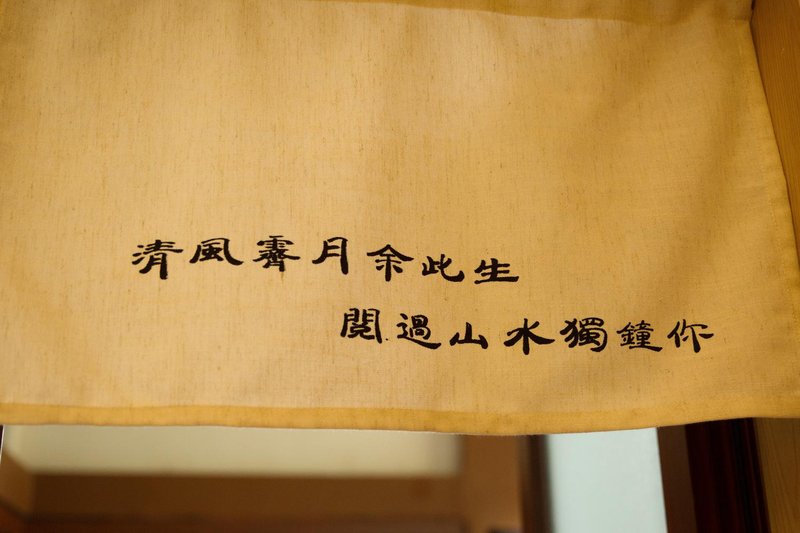 清風霽月余此生
閱過山水獨鐘你